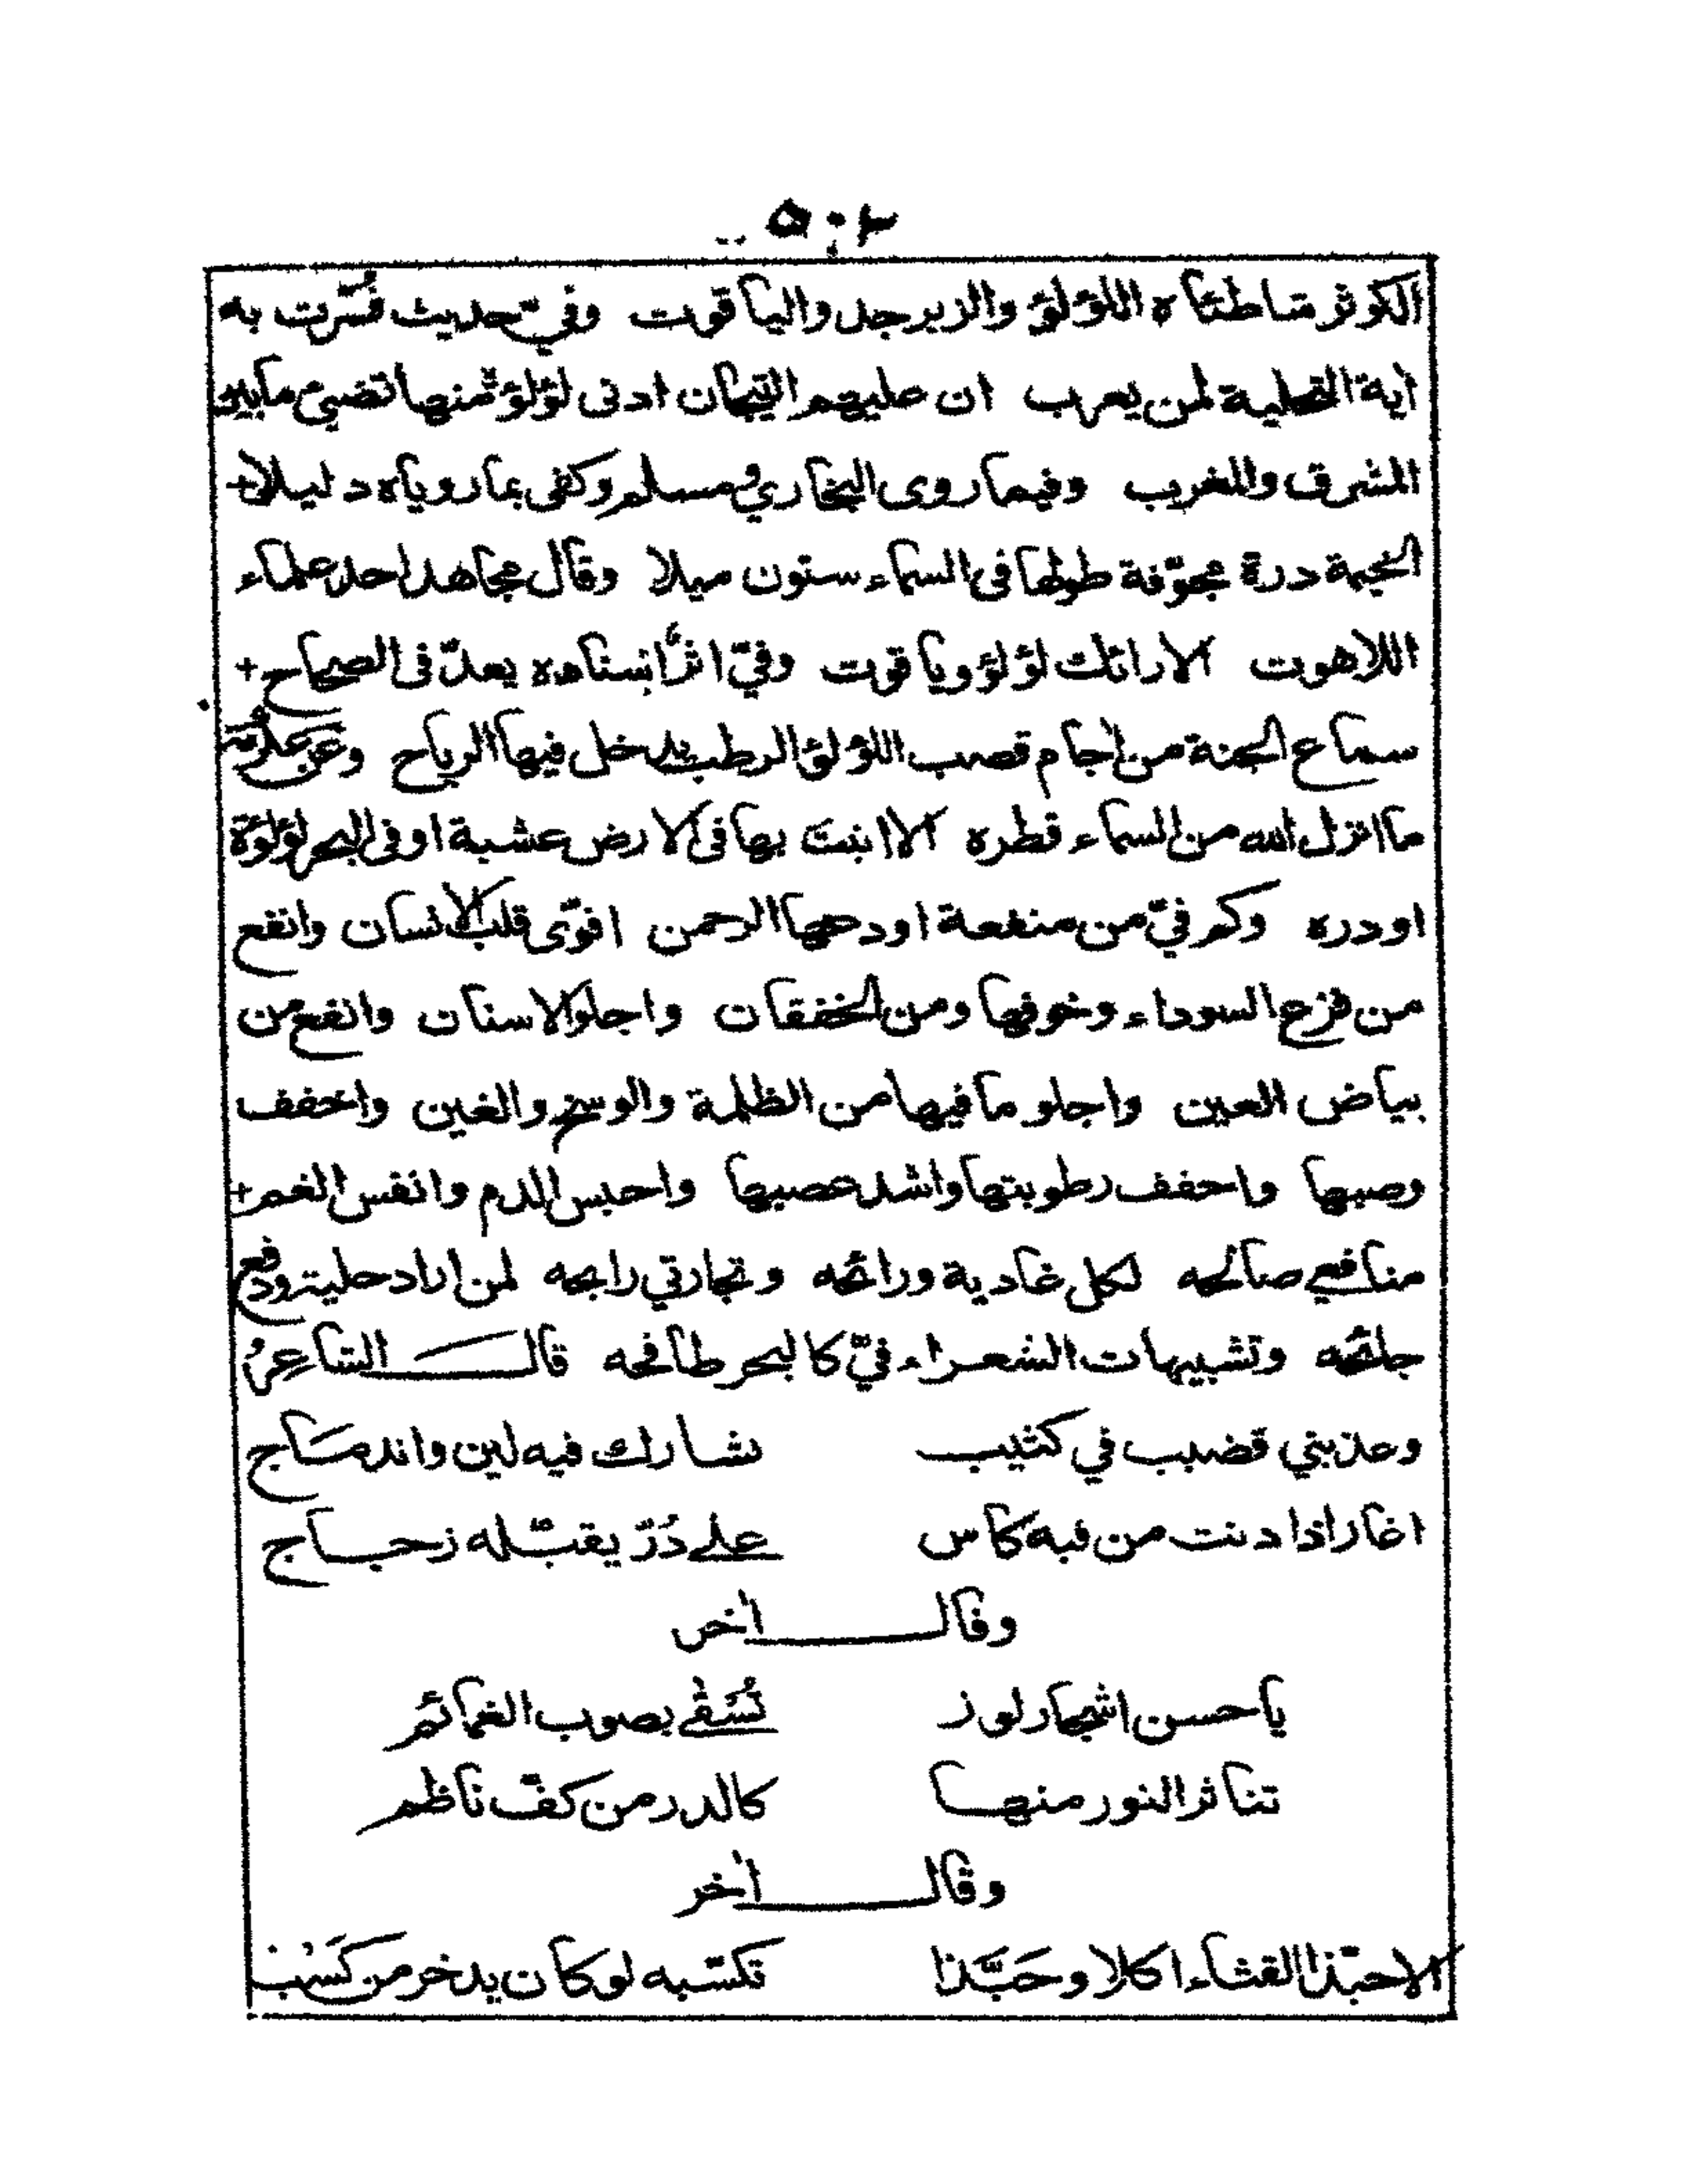 ٥٠٢
الكوثر شاطئاه اللؤلؤ والزبرجد والياقوت وفيّ حديث فُسّرت به
آية التحلية لمن يعرب ان عليهم التيجان ادنى لؤلؤة منها تضيئ مابين
المشرق والمغرب وفيما روى البخاري ومسلم وكفى بما روياه دليلا
الخيمة درة مجوّفة طولها في السماء ستون ميلا وقال مجاهد احد علماء
اللاهوت الارائك لؤلؤ وياقوت وفيّ اثر اسناده يعدّ فى الصحاح
سماع الجنة من اجام قصب اللؤلؤ الرطب يدخل فيها الرياح وعن عكرمة
ما انزل الله من السماء قطره الا انبت بها فى الارض عشبة او فى البحر لؤلؤة
او دره وكم فيّ من منفعة اودعها الرحمن اقوّى قلب الانسان وانفع
من فزع السوداء وخوفها ومن الخفقان واجلو الاسنان وانفع من
بياض العين واجلو ما فيها من الظلمة والوسخ والغين واخفف
وصبها واجفف رطوبتها واشد عصبها واحبس الدم وانفس الغم
منافعي صالحه لكل غادية ورائحه وتجارتي رابحه لمن اراد حليته ودفع
جائحه وتشبيهات الشعراء فيّ كالبحر طافحه قال الشاعرُ
وعذبني قضيب في كثيب تشارك فيه لين واندماج
اغار اذا دنت من فيه كاس على دُرّ يقبّله زجاج
وقال اخر
ياحسن اشجار لوز تُسْقى بصوب الغمائم
تناثر النور منها كالدر من كفّ ناظم
وقال اخر
الا حبّذا القثاء اكلا وحَبَّذا تكسّبه لو كان يدخر من كَسْب